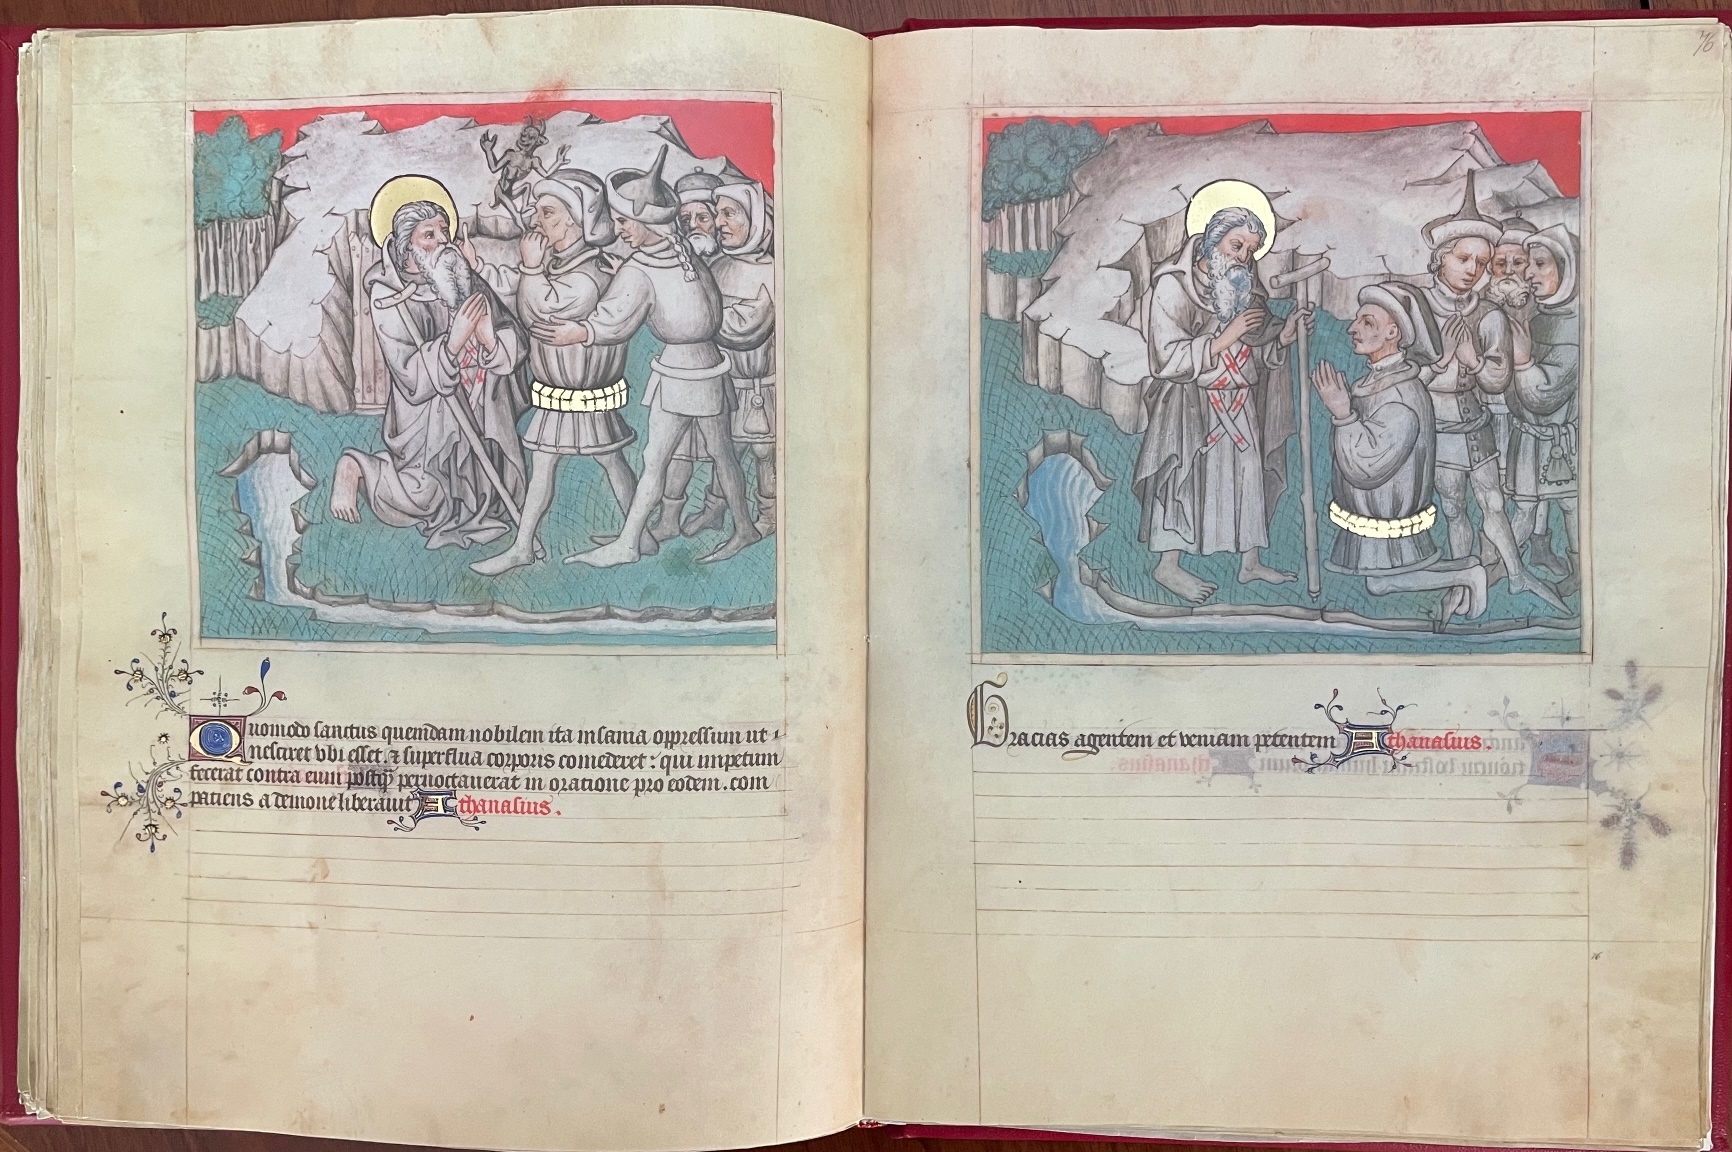 Quomodo sanctus quemdam nobilem ita insania oppressum ut i
nesciret vbi esset. ⁊ superflua corporis comederet : qui impetum
fecerat contra eum postqȝ pernoctauerat in oratione pro eodem. com
patiens a demone liberauit Athanasius.
76
Gracias agentem et veniam petentem Athanasius.